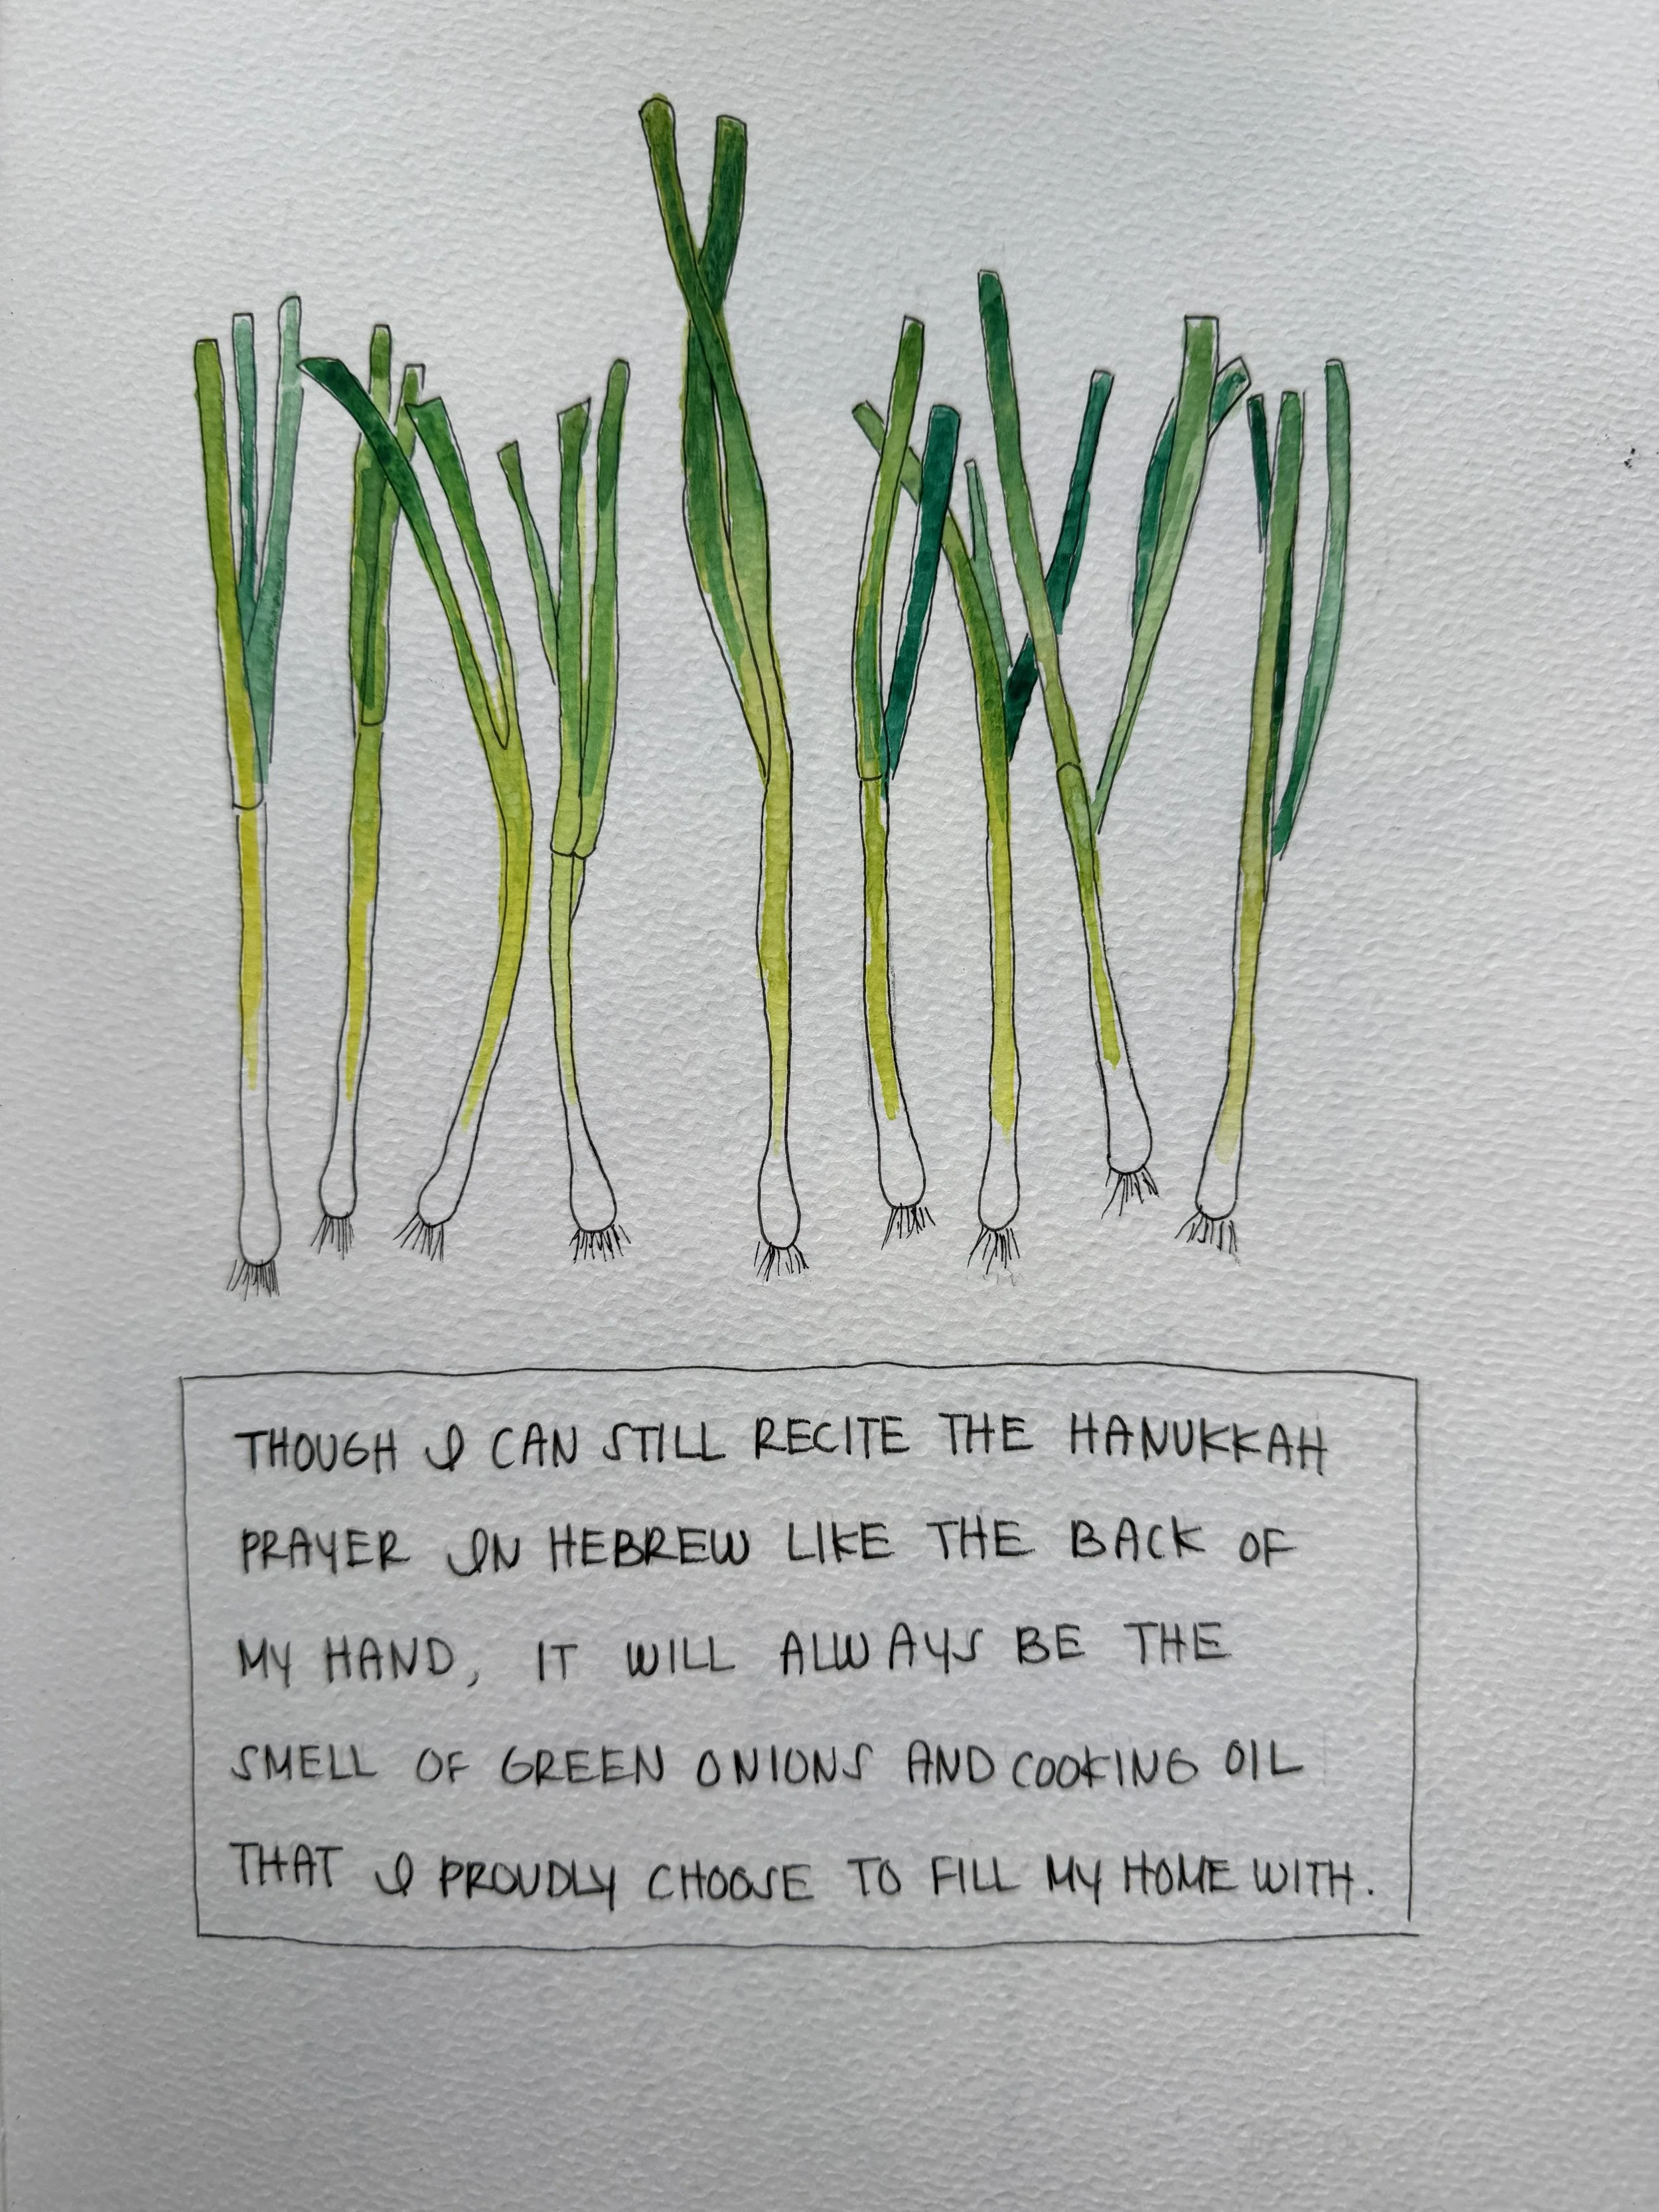 THOUGH I CAN STILL RECITE THE HANUKKAH
PRAYER IN HEBREW LIKE THE BACK OF
MY HAND, IT WILL ALWAYS BE THE
SMELL OF GREEN ONIONS AND COOKING OIL
THAT I PROUDLY CHOOSE TO FILL MY HOME WITH.